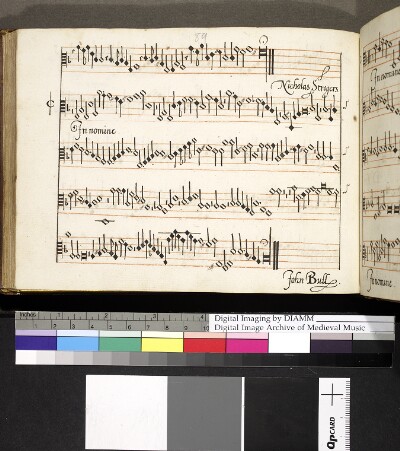 Nicholas Strogers
In nomine
In nomine
John Bull
In nomine
inches 1 2 3 4
Digital Imaging by DIAMM
Digital Image Archive of Medieval Music
QPCARD